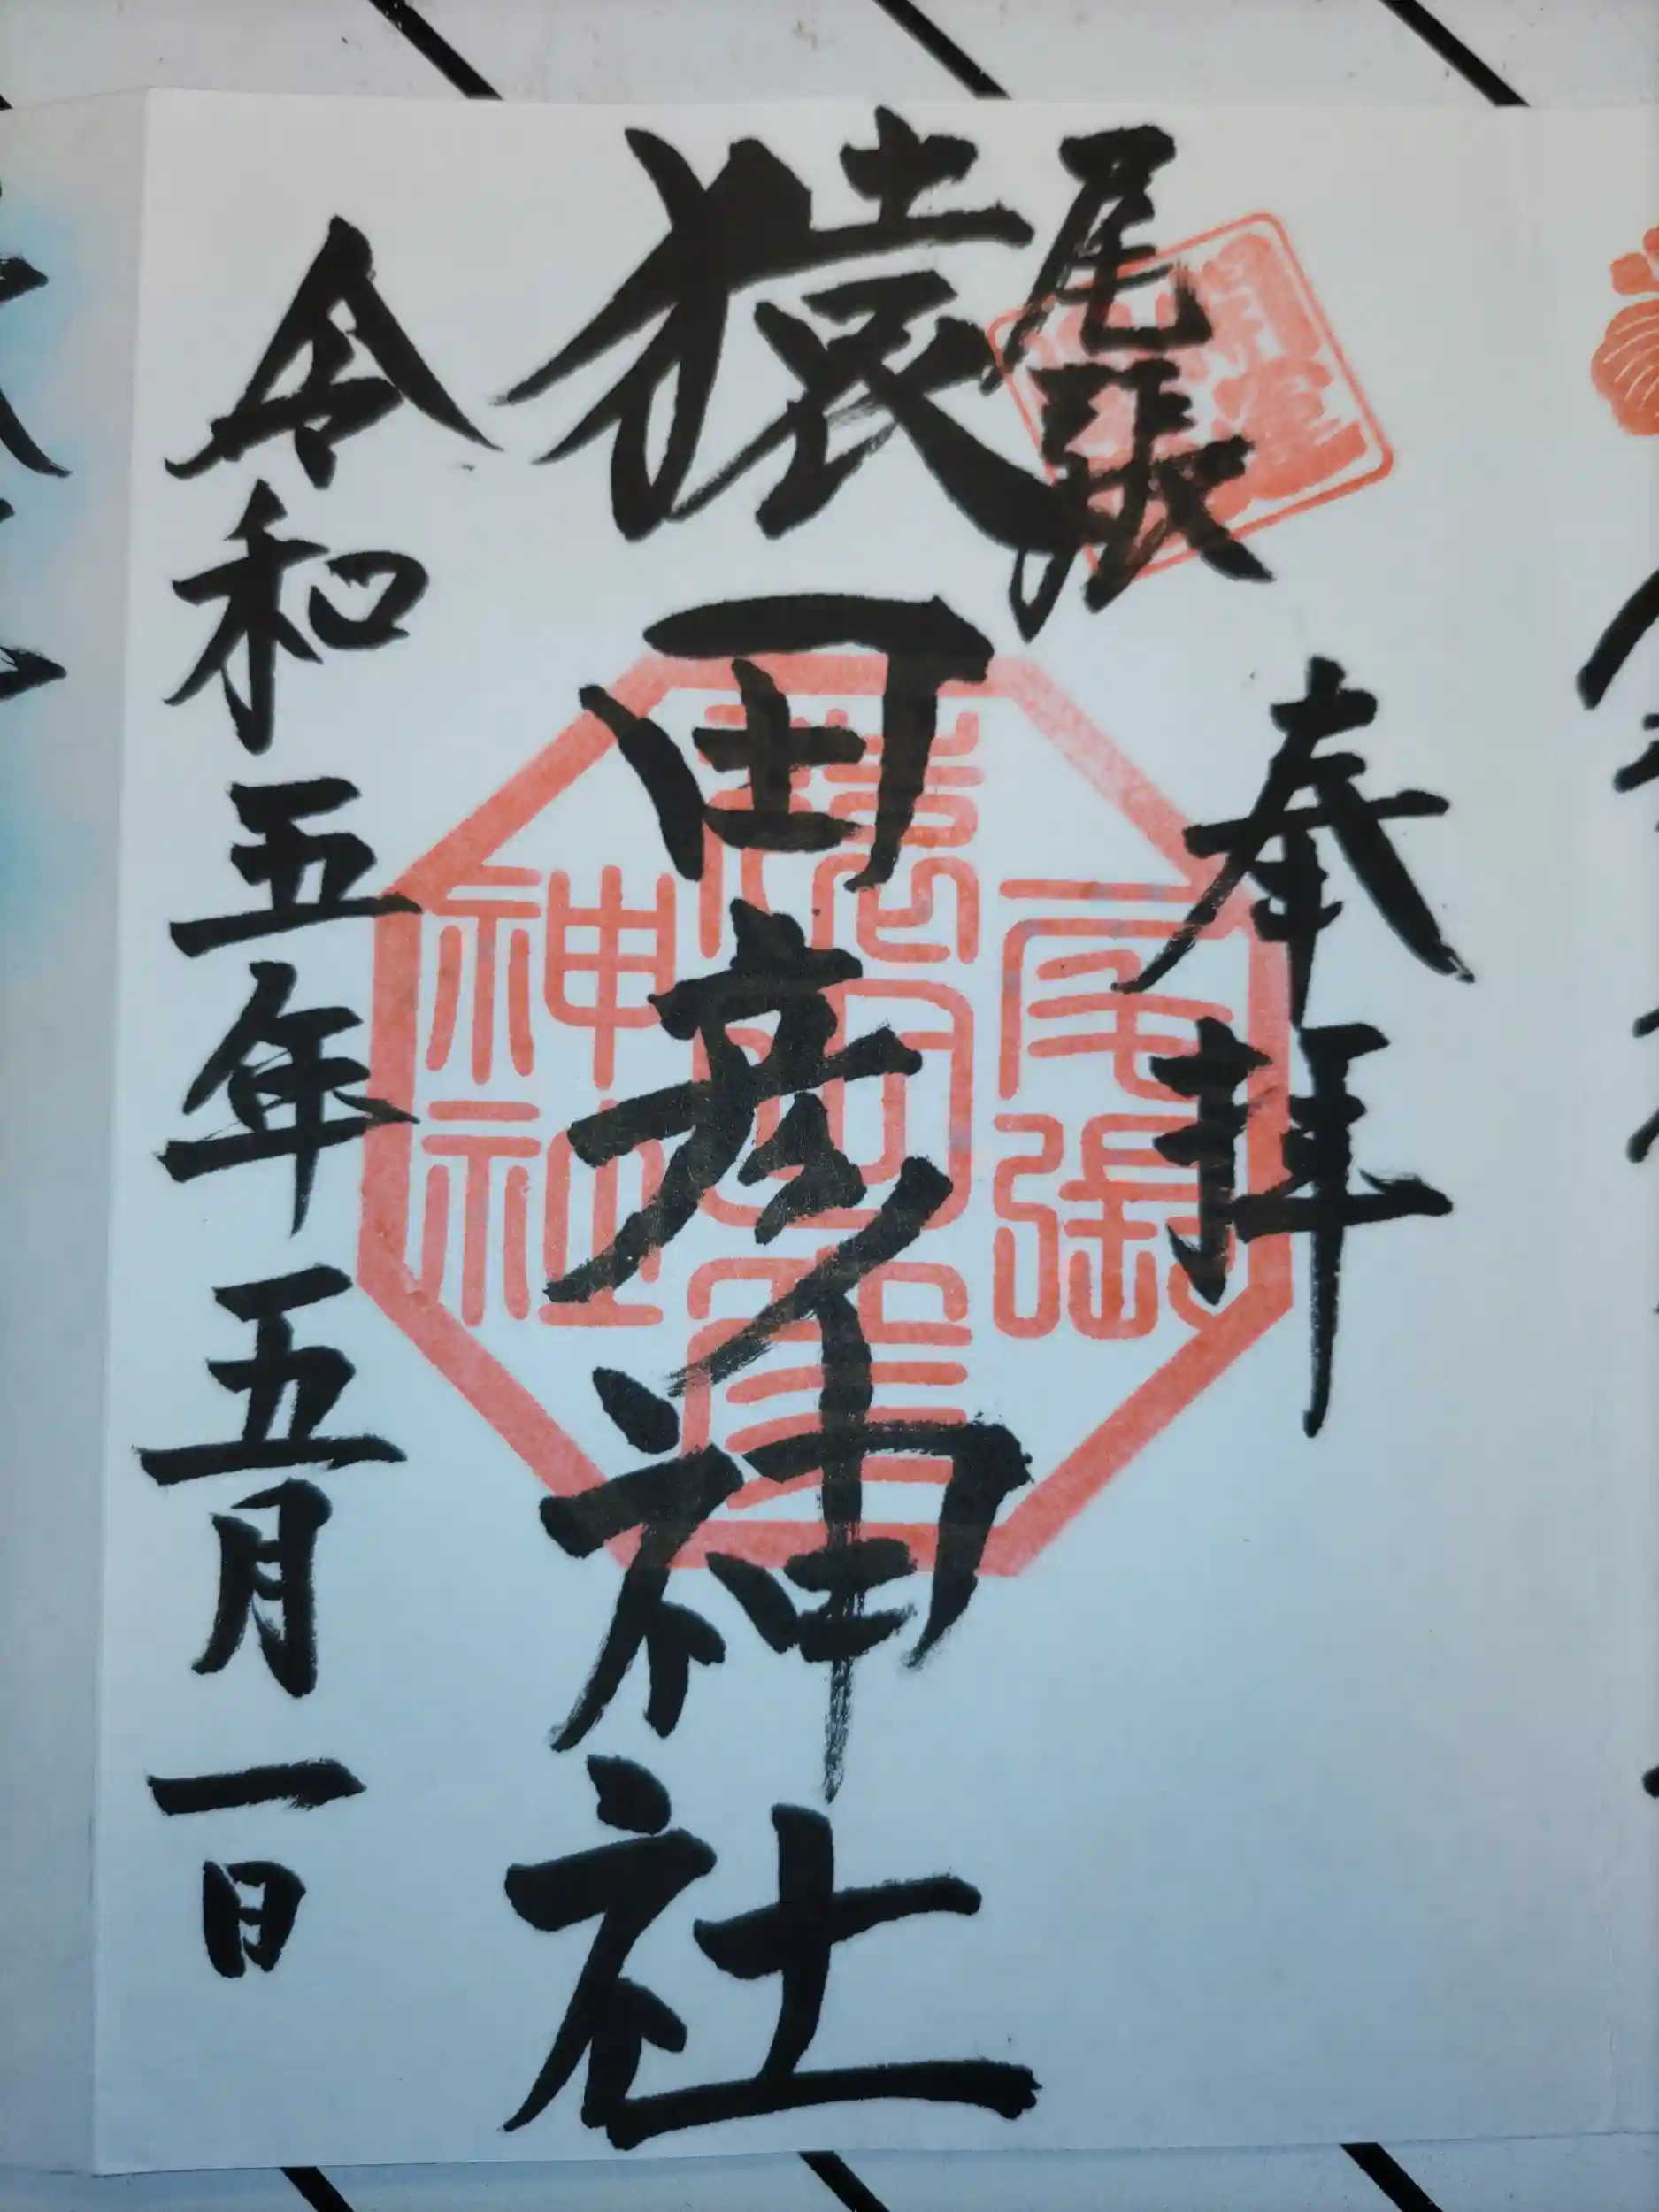 奉拝
尾張
猿田彦神社
令和五年五月一日
尾張
猿田彦
神社